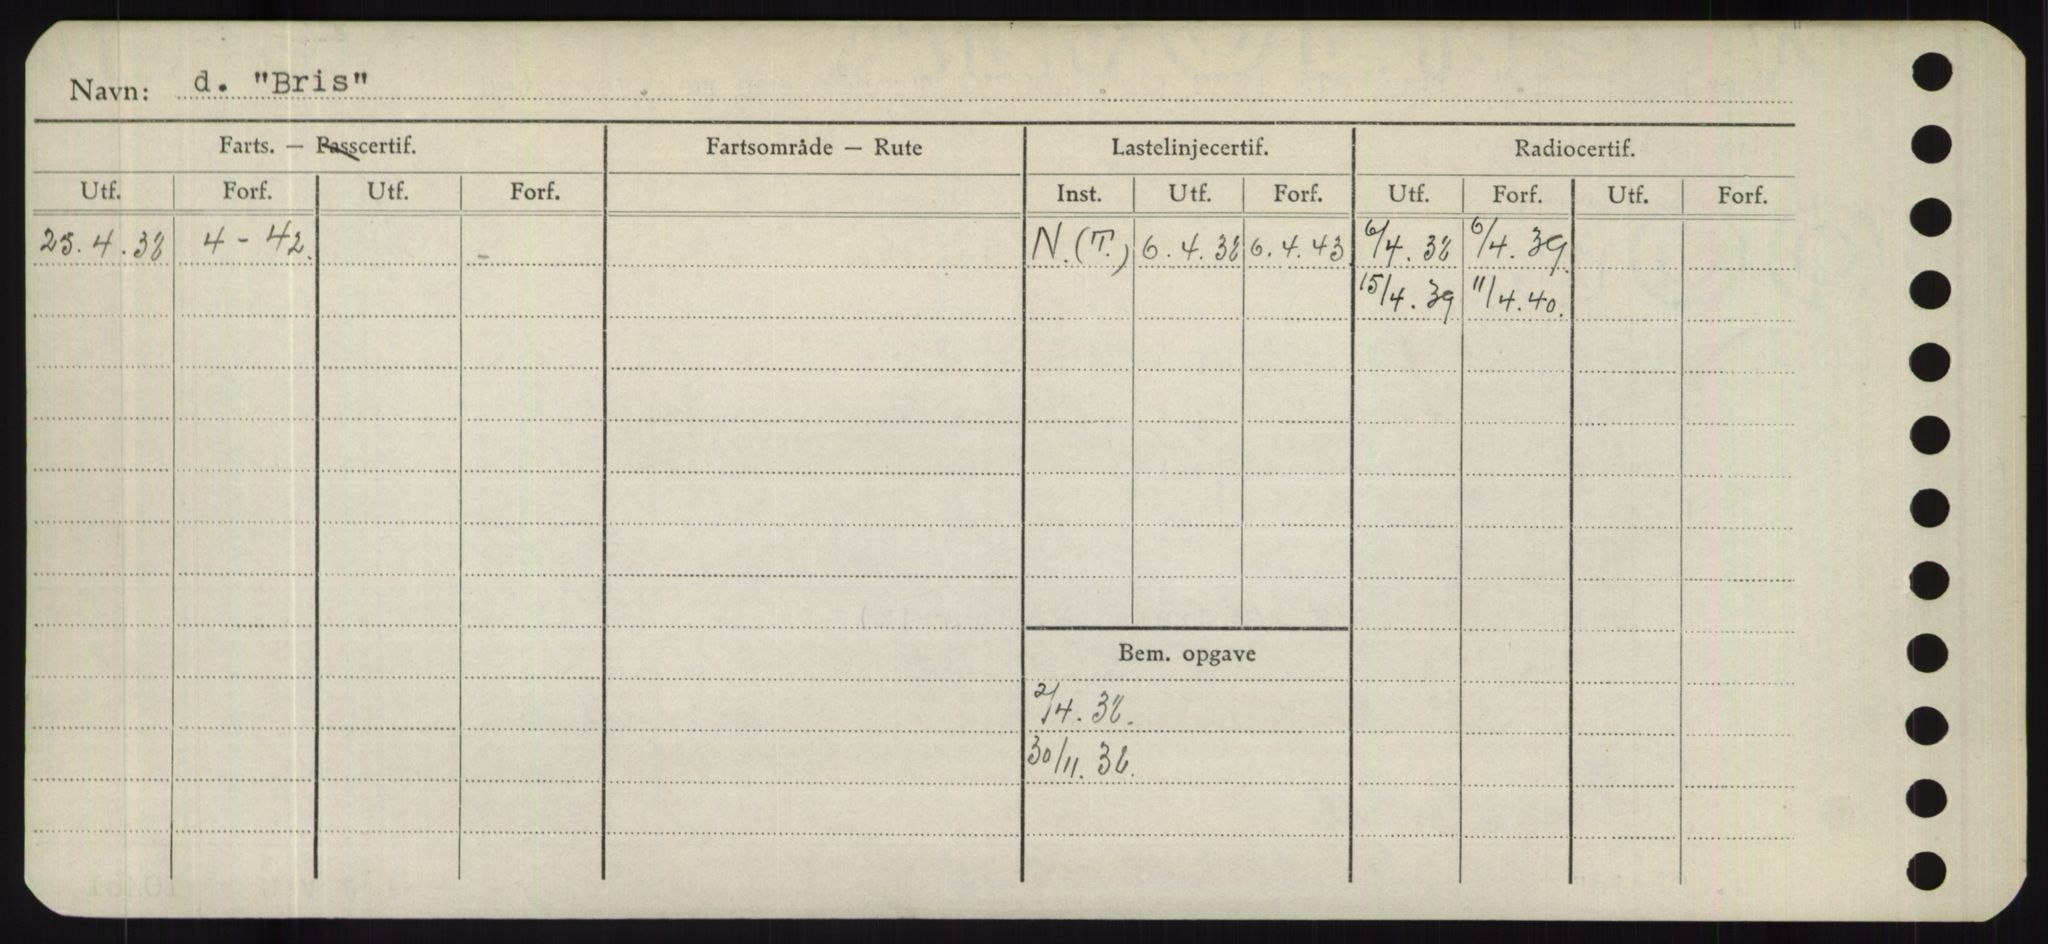 Navn: d. "Bris"
Farts. — Passcertif. Fartsområde — Rute Lastelinjecertif. Radiocertif.
Utf. Forf. Utf. Forf. Inst. Utf. Forf. Utf. Forf. Utf. Forf.
25.4.38 4-42. N.(T.) 6.4.38 6.4.43 6/4.38 6/4.39
15/4.39 11/4.40.
Bem. opgave
2/4.38.
30/11.38.